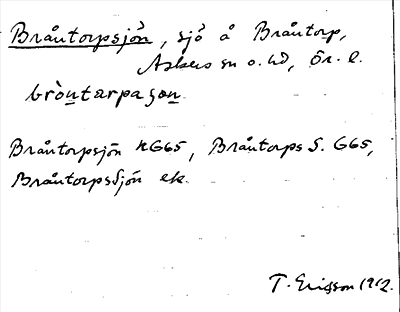 Bråntorpsjön, sjö å Bråntorp,
Askers sn o. hd, Ör. l.
bròntarpaşøn.
Bråntorpsjön HG65, Bråntorps S. G65,
BråntorpsSjön ek.
T. Ericsson 1912.